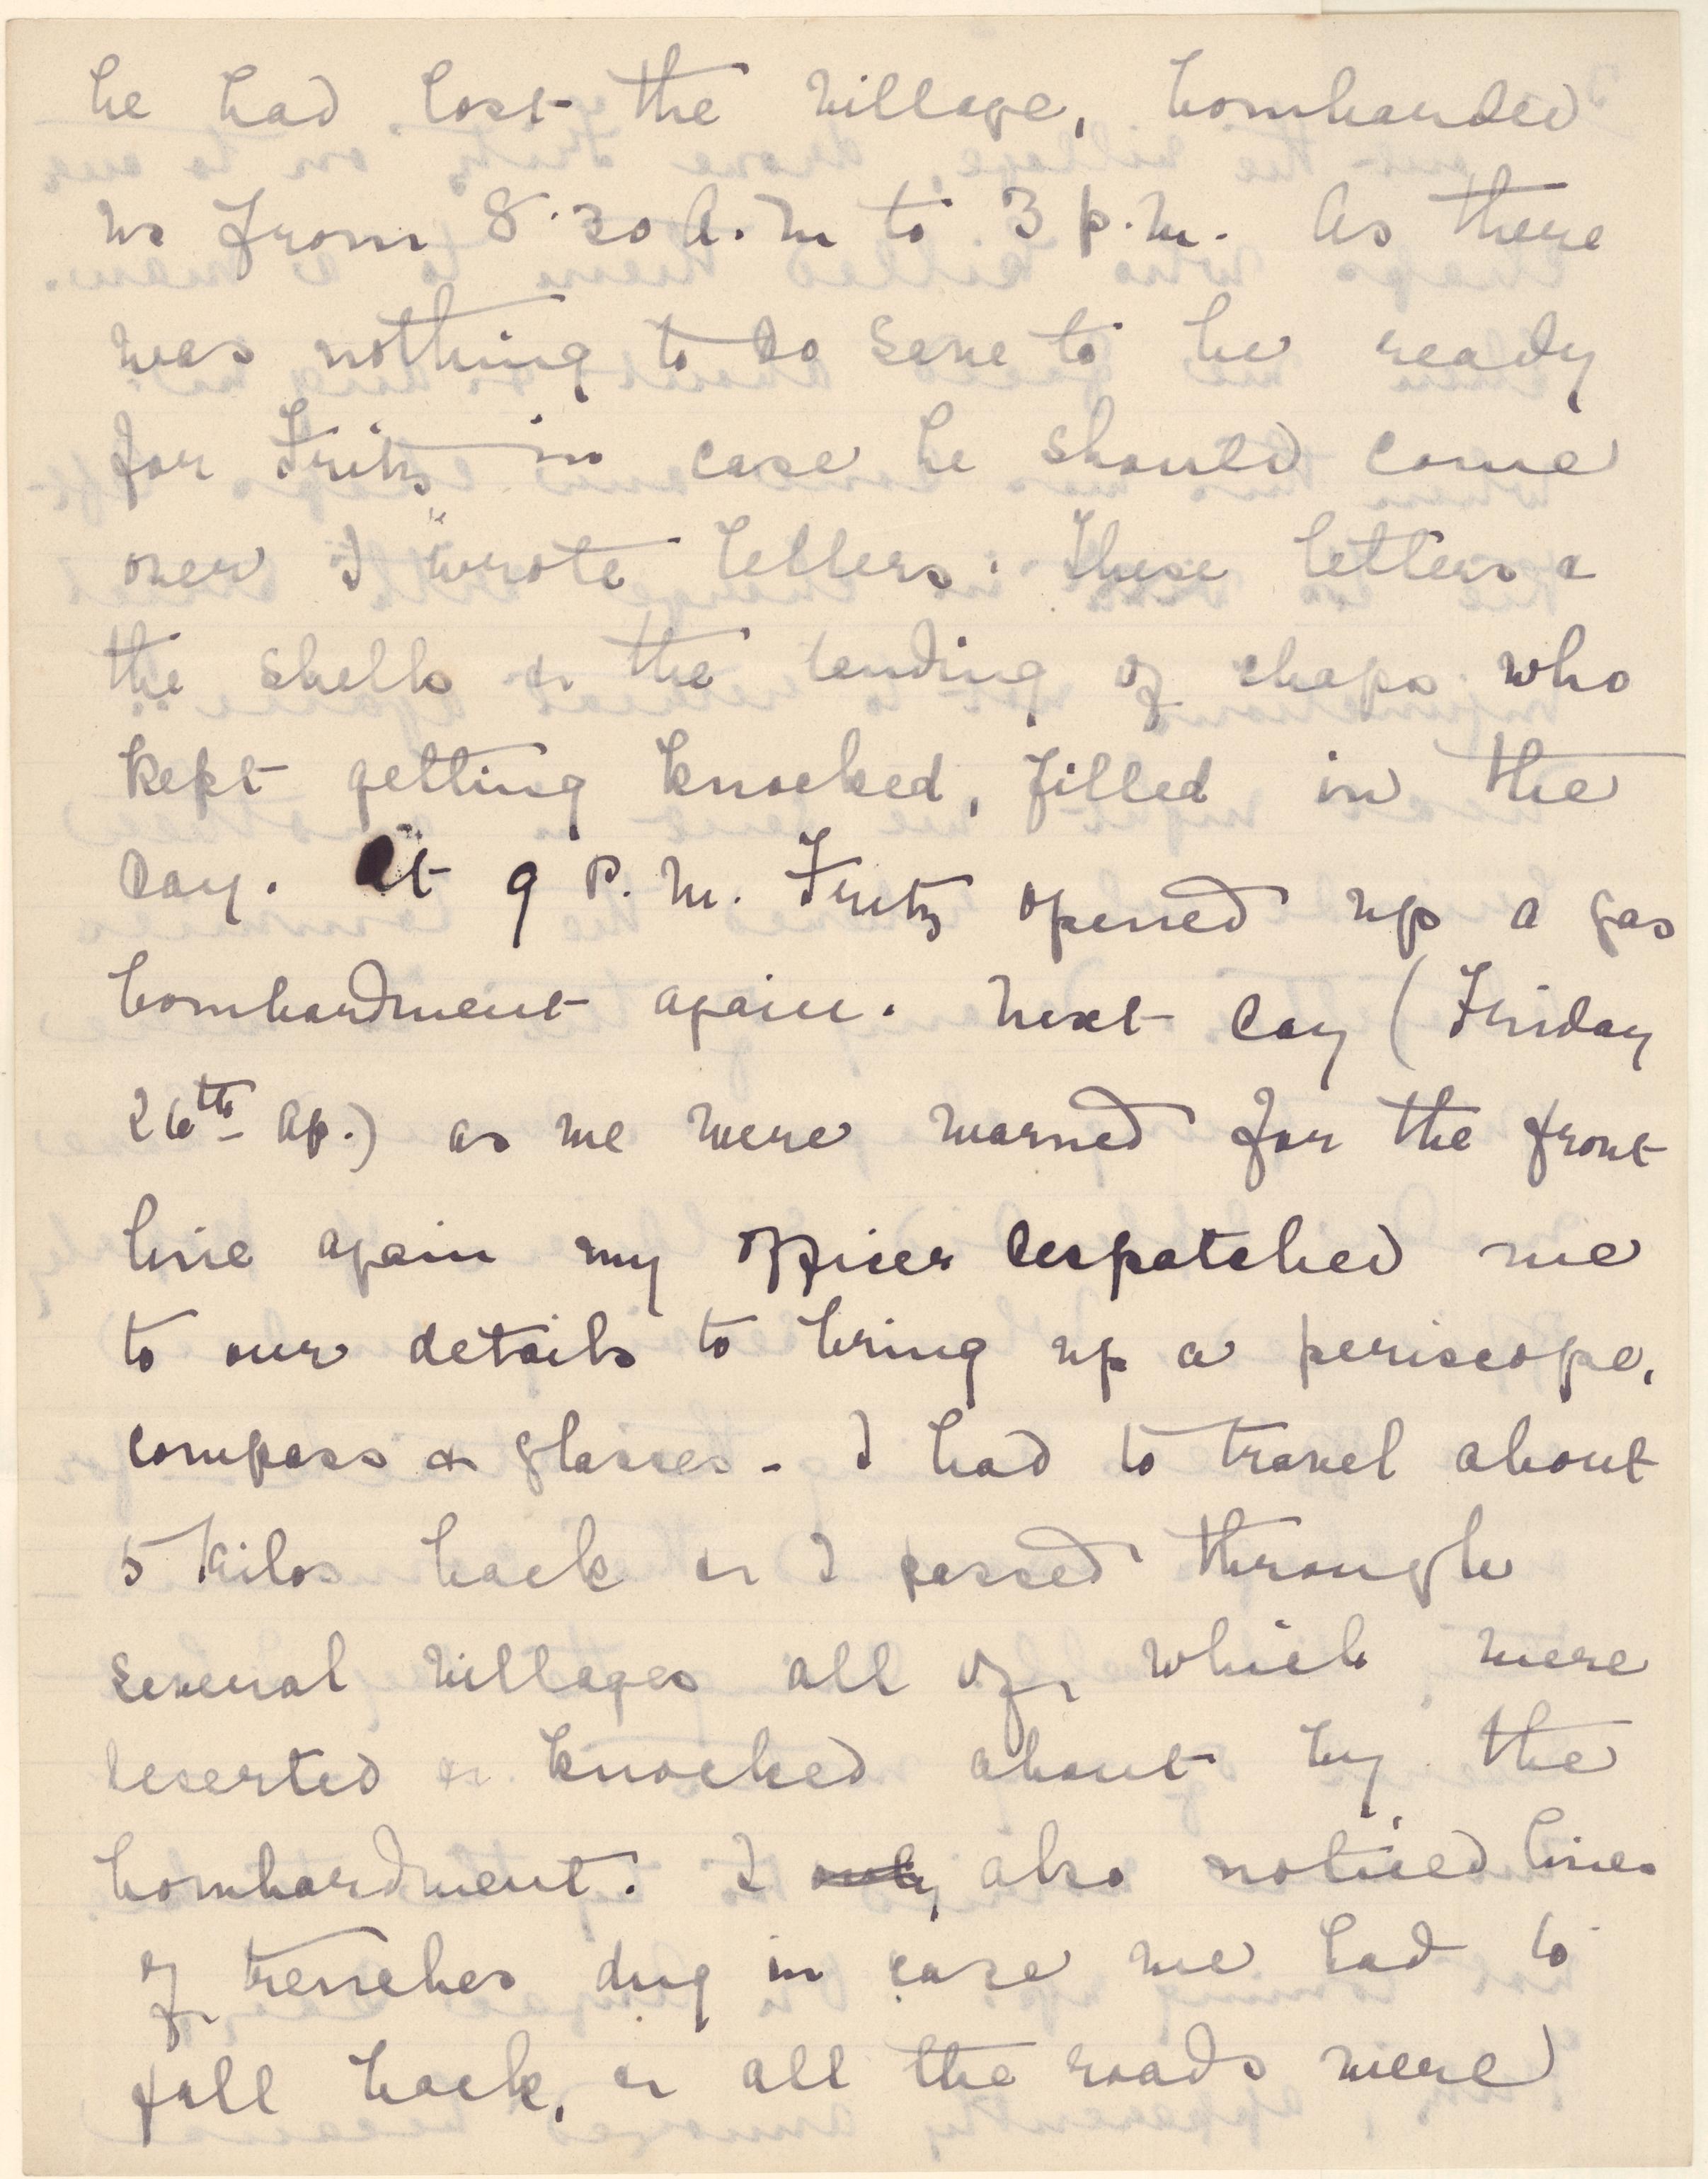 he had lost the village, bombarded
us from 8.30 A.M to 3 p.m. As there
was nothing to do save to be ready
for Fritz in case he should come
over I wrote letters. These letters &
the shells & the tending of chaps who
kept getting knocked, filled in the
day. At 9 P.M. Fritz opened up a gas
bombardment again. Next day (Friday
26th Ap.) as we were warned for the front
line again my officer despatched me
to our details to bring up a periscope,
compass & glasses. I had to travel about
5 kilos back & I passed through
several villages all of which were
deserted & knocked about by the
bombardment. I only also noticed lines
of trenches dug in case we had to
fall back, & all the roads were